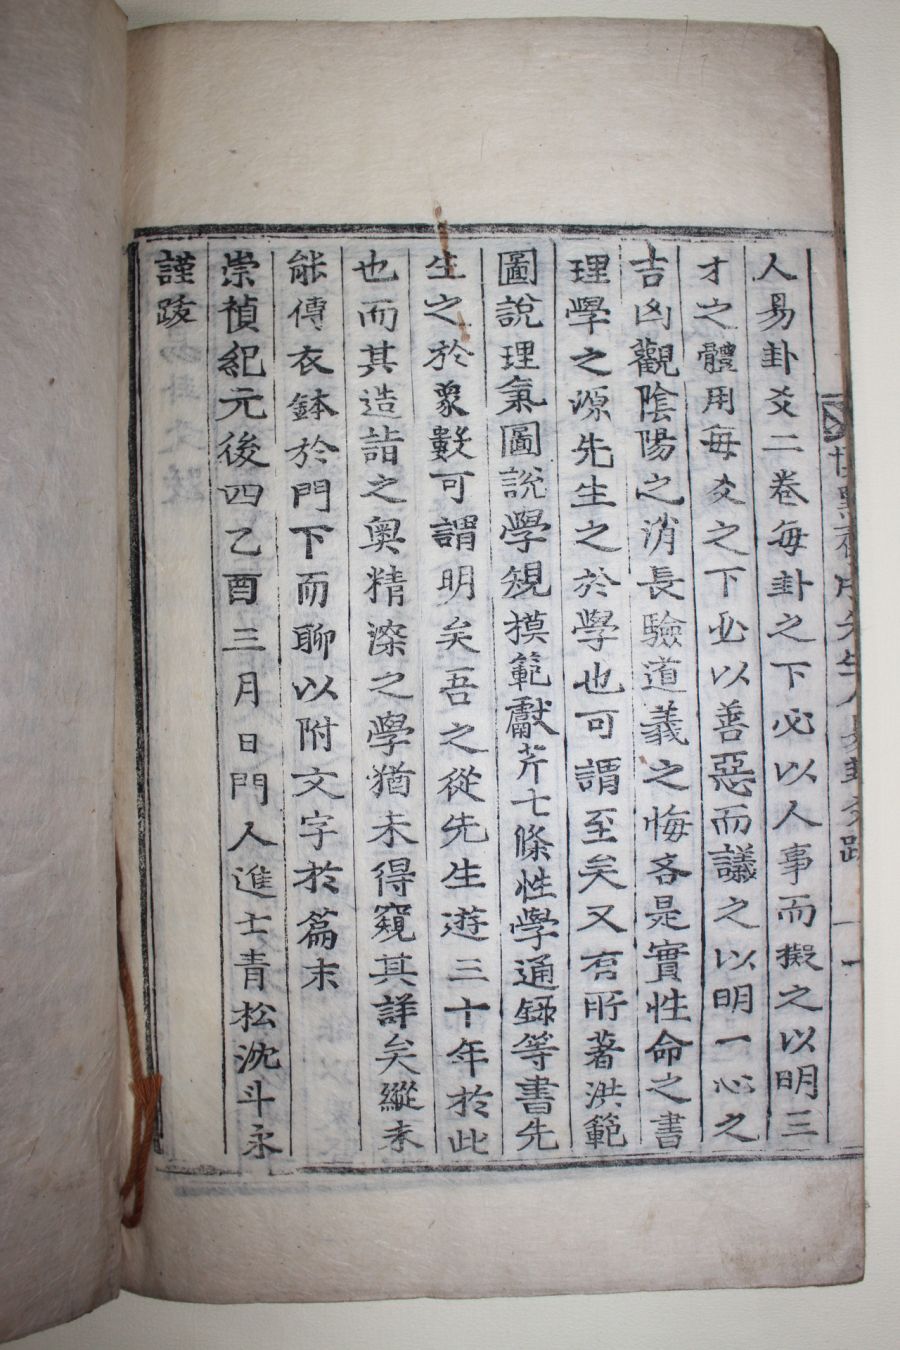 人易卦爻二卷每卦之下必以人事而擬之以明三
才之體用每爻之下必以善惡而議之以明一心之
吉凶觀陰陽之消長驗道義之悔吝是實性命之書
理學之源先生之於學也可謂至矣又有所著洪範
圖說理氣圖說學規模範獻芹七條性學通錄等書先
生之於象數可謂明矣吾之從先生遊三十年於此
也而其造詣之奧精深之學猶未得窺其詳矣縱未
能傳衣鉢於門下而聊以附文字於篇末
崇禎紀元後四乙酉三月日門人進士青松沈斗永
謹跋
先生人易卦爻跋 一